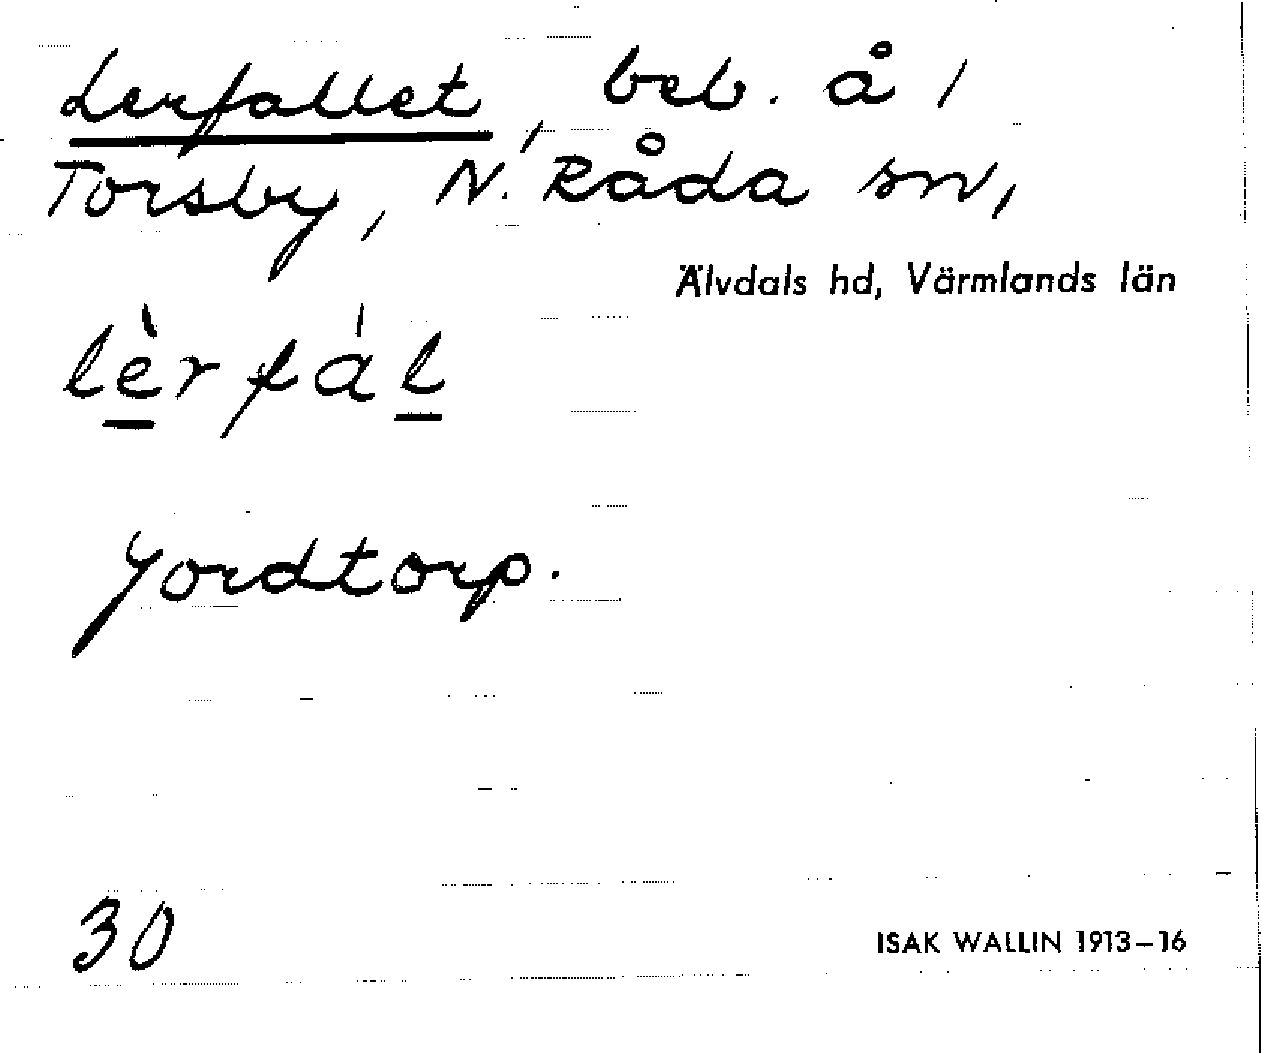 Lerfallet, beb. å /
Torsby, N. Råda sn,
Älvdals hd, Värmlands län
lèrfál
Jordtorp.
30
ISAK WALLIN 1913–16